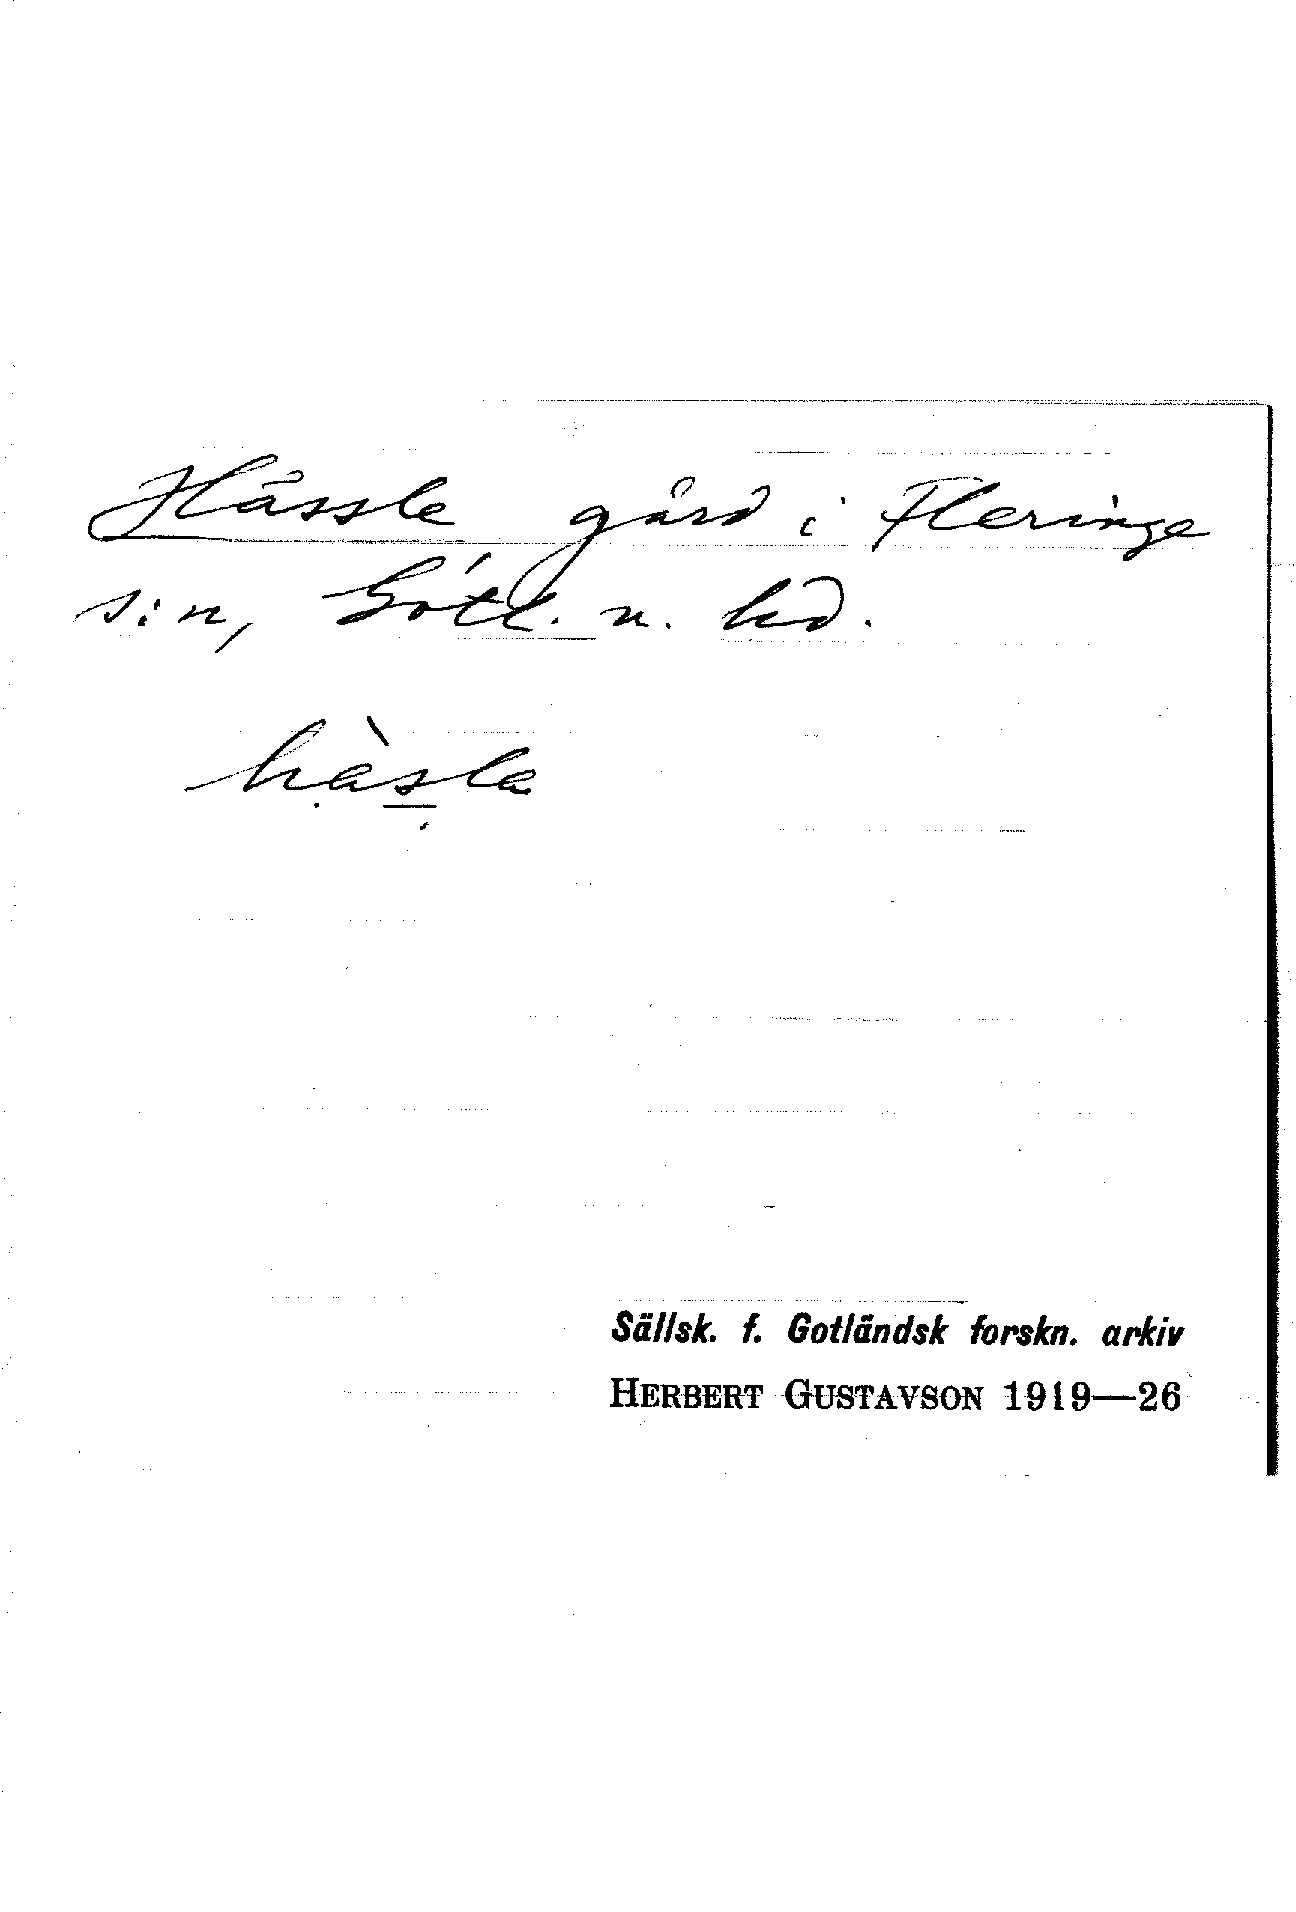 Hässle gård i Fleringe
s:n, Gotl. n. hd.
hàsla
Sällsk. f. Gotländsk forskn. arkiv
HERBERT GUSTAVSON 1919—26